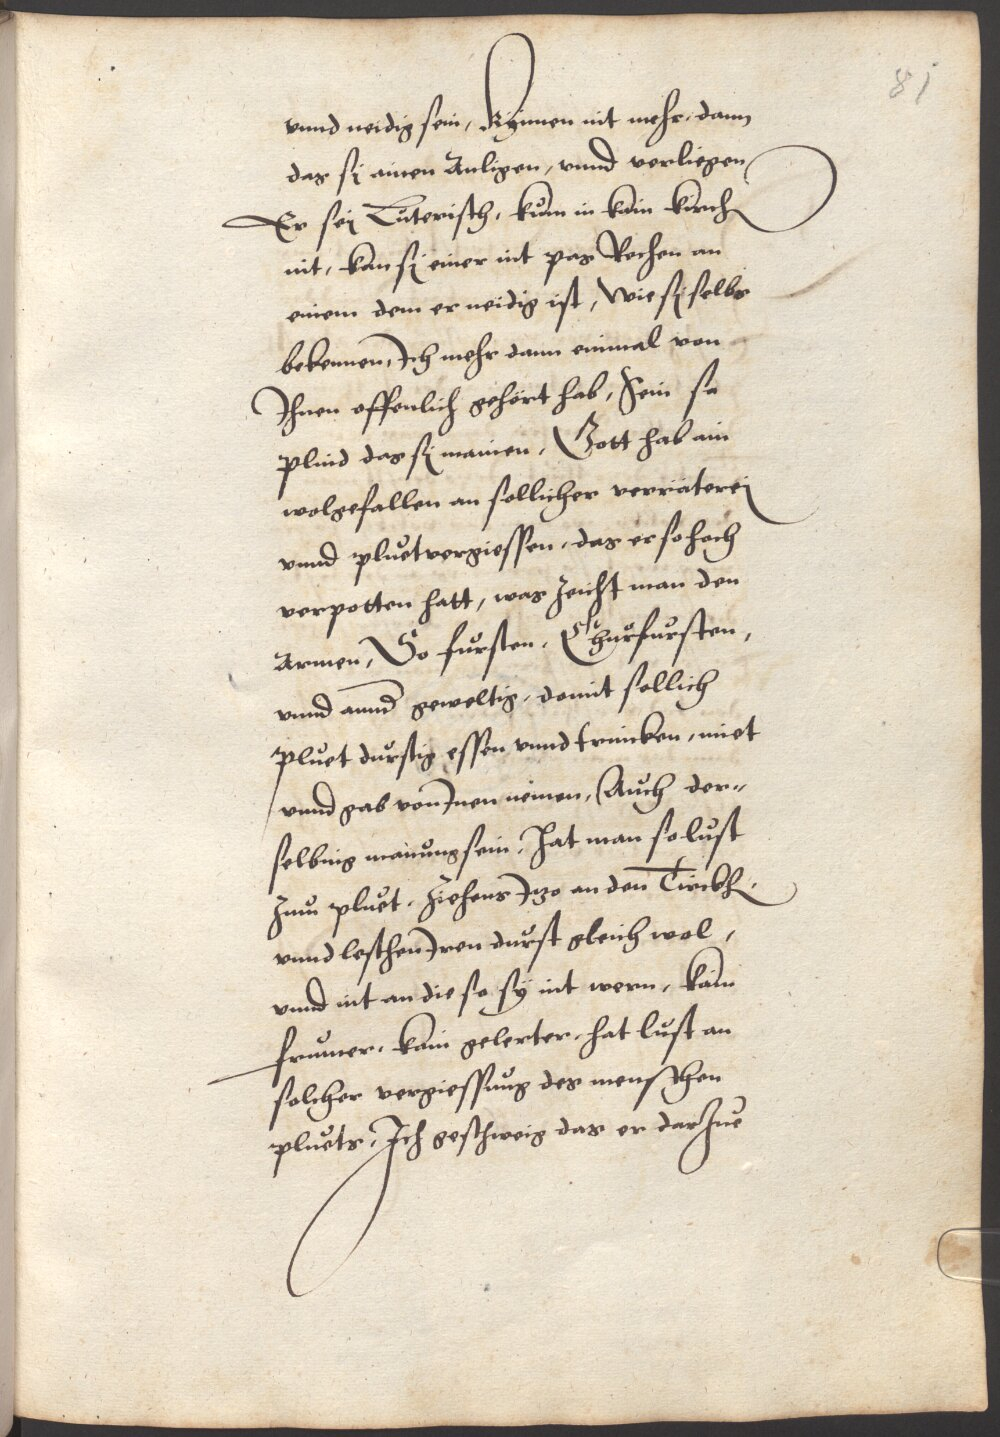 81
vnnd neidig sein, Künnen nit mehr, dann
das sy ainen Anligen, vnnd verliegen
Er sei Luterisch, kum in kain kirch
nit, kan sy einer nit pas Rechen an
einem dem er neidig ist, Wie sy selbs
bekennen, Ich mehr dann einmal von
Ihnen offenlich gehört hab, Sein so
plind das sy mainen, Gott hab ain
wolgefallen an sollicher verräterei
vnnd pluetvergiessen, das er so hoch
verpotten hatt, was zeicht man den
Armen, So fursten, Churfursten,
vnnd annd geweltig, domit sollich
pluet durstig essen vnnd trincken, miet
vnnd gab von Inen nemen, Auch der-
selbnig mainung sein, Hat man so lust
zum pluet, Ziehens Izo an den Türckh,
vnnd leschen Iren durst gleich wol,
vnnd nit an die so sy nit wern, kain
frumer, kain gelerter, hat lust an
solcher vergiessung des menschen
pluets, Ich geschweig das er darzue